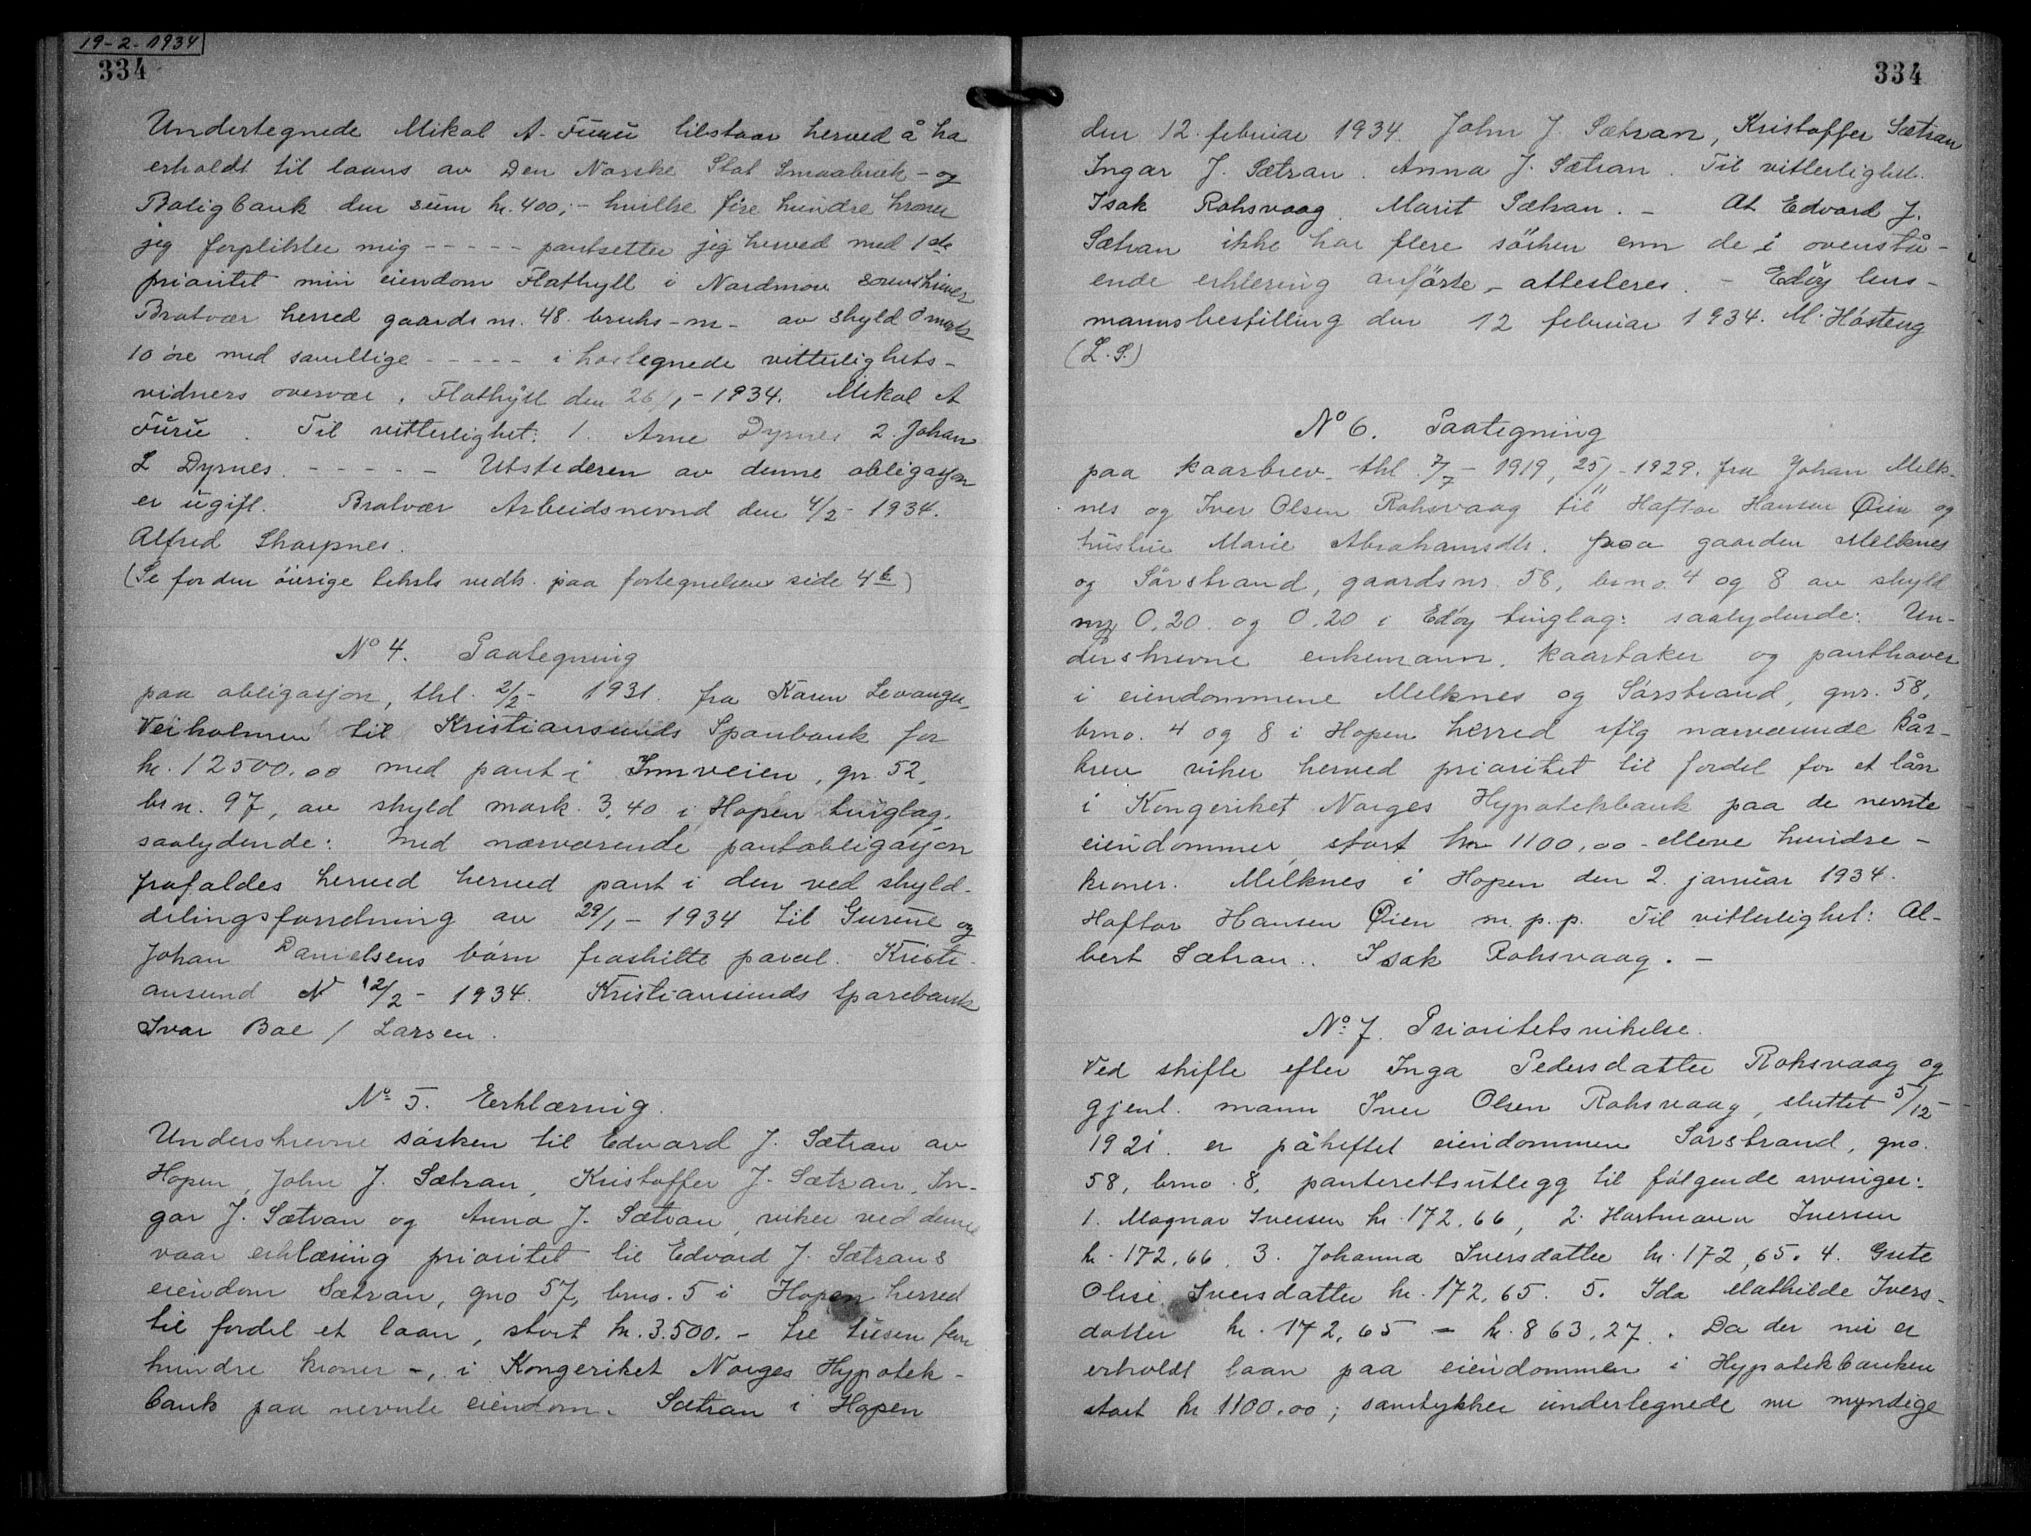 19-2-1934
334
Undertegnede Mikal A. Furu tilstaar herved å ha
erholdt til laans av Den Norske Stat Smaabruk- og
Boligbank den sum kr. 400,- hvilke fire hundre kroner
jeg forplikter mig - - - - - pantsetter jeg herved med 1ste
prioritet min eiendom Flathyll i Nordmøre sorenskriveri
Bratvær herred gaards nr. 48. bruks-nr- av skyld 0 mark
10 øre med samtlige - - - - - i hostegnede vitterlighets-
vidners overvær. Flathyll den 26/1-1934. Mikal A
Furu. Til vitterlighet: 1. Arne Dyrnes 2. Johan
L Dyrnes. - - - - - Utstederen av denne obligasjon
er ugift. Bratvær Arbeidsnevnd den 4/2-1934.
Alfred Skarpnes.
(Se forden øvrige tekst vedk. paa fortegnelsen side 4b)
No 4. Paategning
paa obligasjon, thl. 2/2- 1931. fra Karen Levanger,
Veiholmen til Kristiansunds Sparebank for
kr. 12500.00 med pant i Innveien, gnr. 52,
brn. 97, av skyld mark. 3,40 i Hopen tinglag.
saalydende: Med nærværende pantobligasjon
frafaldes herved herved pant i den ved skyld-
delingsforretning av 29/1-1934 til Gurine og
Johan Danielsens børn fraskilte parcel. Kristi-
ansund N 12/2-1934. Kristiansunds Sparebank
Ivar Bae / Larsen.
No 5. Erklæring.
Underskrevne søsken til Edvard J. Sætran av
Hopen, John J. Sætran, Kristoffer J. Sætran, In-
gar J. Sætran og Anna J. Sætran, viker ved denne
vaar erklæring prioritet til Edvard J. Sætrans
eiendom Sætran, gno 57, brno. 5 i Hopen herred
til fordel et laan, stort kr. 3.500.- tre tusen fem
hundre kroner -, i Kongeriket Norges Hypotek-
bank paa nevnte eiendom. Sætran i Hopen
334
den 12. februar 1934. John J. Sætran, Kristoffer Sætran
Ingar J. Sætran. Anna J. Sætran. Til vitterlighet.
Isak Rohsvaag. Marit Sætran. - At Edvard J.
Sætran ikke har flere søsken enn de i ovenstå-
ende erklæring anførte, - attesteres. - Edøy lens-
mannsbestilling den 12 februar 1934. M. Høsteng
(L.S.)
No 6. Paategning
paa kaarbrev thl. 7/7-1919, 25/11-1929. fra Johan Melk-
nes og Iver Olsen Rohsvaag til Haftor Hansen Øien og
hustru Marie Abrahamsdtr. paa gaarden Melknes
og Sørstrand, gaardsnr. 58, brno. 4 og 8 av skyld
mrk 0.20 og 0.20 i Edøy tinglag: saalydende: Un-
derskrevne enkemann, kaartaker og panthaver
i eiendommene Melknes og Sørstrand, gnr. 58,
brno. 4 og 8 i Hopen herred iflg nærværende kår-
brev viker herved prioritet til fordel for et lån
i Kongeriket Norges Hypotekbank paa de nevnte
eiendommer, stort kr 1100,00 - elleve hundre -
kroner. Melknes i Hopen den 2. januar 1934.
Haftor Hansen Øien m.p.p. Til vitterlighet: Al-
bert Sætran. Isak Rohsvaag. -
No 7. Prioritetsvikelse.
Ved skifte efter Inga Pedersdatter Rohsvaag og
gjenl. mann Iver Olsen Rohsvaag, sluttet 5/12-
1921. er påheftet eiendommen Sørstrand, gno.
58, brno. 8, panterettsutlegg til følgende arvinger:
1. Magnar Iversen kr. 172.66, 2. Hartmann Iversen
kr. 172,66. 3. Johanna Iversdatter kr. 172,65. 4. Grete
Olise Iversdatter kr. 172,65. 5. Ida Mathilde Ivers-
datter kr. 172,65 - kr. 863,27. Da der nu er
erholdt laan paa eiendommen i Hypotekbanken
stort kr 1100.00; samtykker undertegnede nu myndige